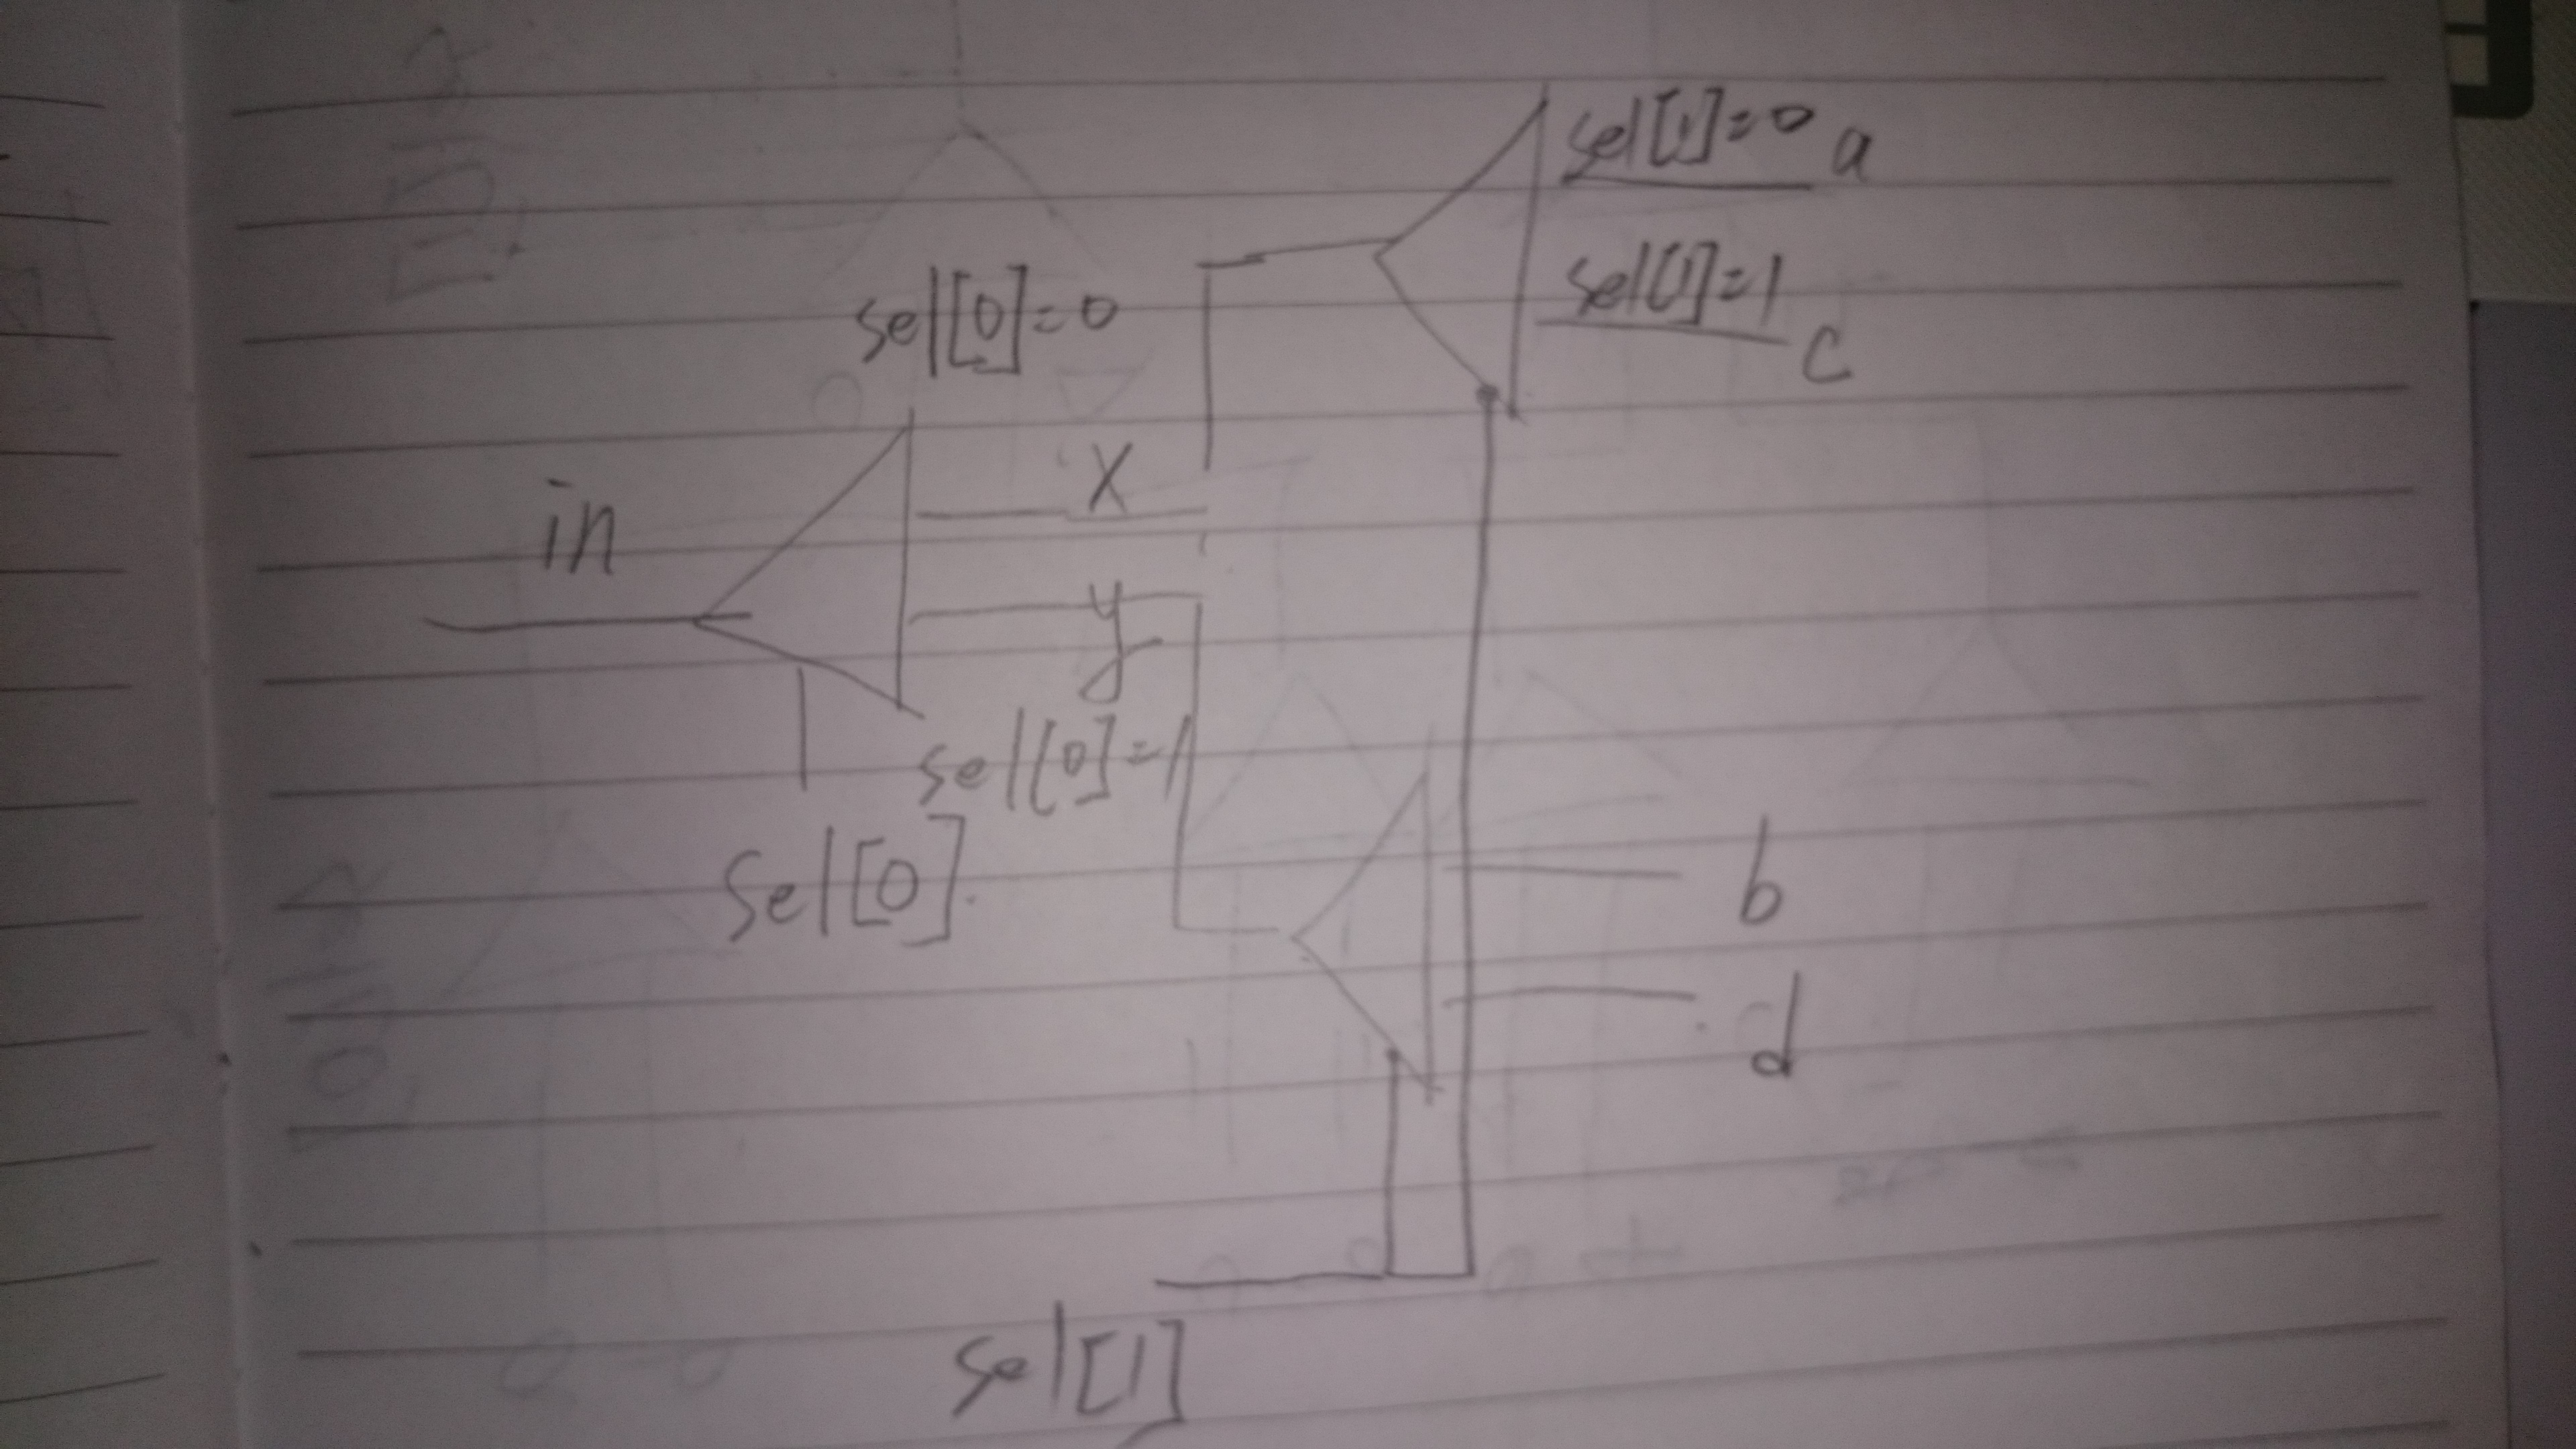 sel[1]=0 a
sel[0]=0
sel[1]=1
c
in
x
y
sel[0]=1
sel[0].
b
d
sel[1]